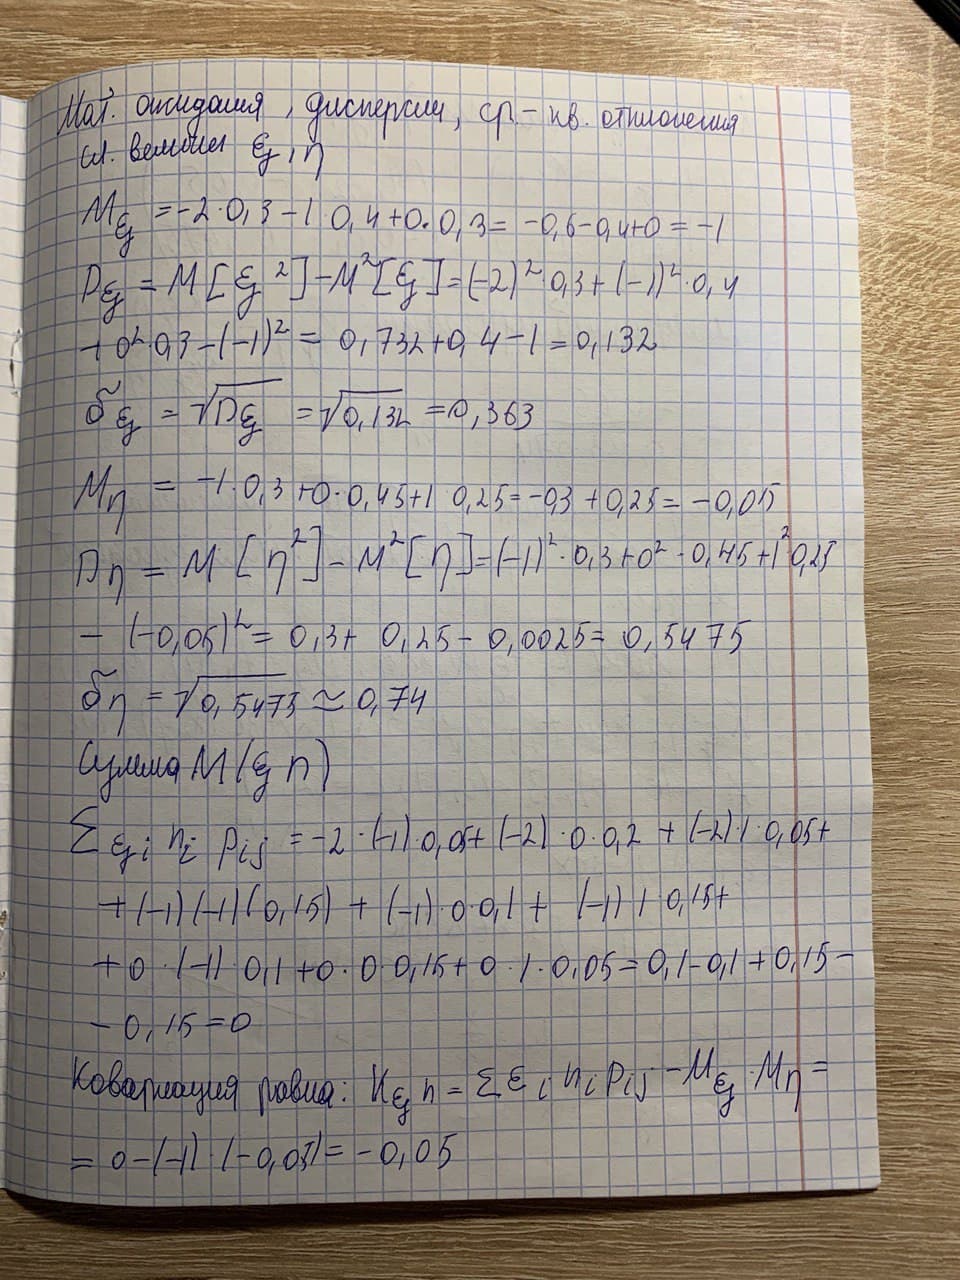 Мат. ожидания, дисперсии, ср.-кв. отклонения
сл. величин ξ, η
Mξ = -2·0,3-1·0,4+0·0,3= -0,6-0,4+0=-1
Dξ = M[ξ²]-M²[ξ]=(-2)²·0,3+(-1)²·0,4
+0²·0,3-(-1)² = 0,732+0,4-1=0,132
δξ = √Dξ = √0,132 =0,363
Mη = -1·0,3+0·0,45+1·0,25=-0,3+0,25= -0,05
Dη = M[η²]-M²[η]=(-1)²·0,3+0²·0,45+1²·0,25
- (-0,05)²= 0,3+ 0,25- 0,0025= 0,5475
δη = √0,5473 ≃ 0,74
Сумма M(ξη)
Σ ξi ηi pij = -2·(-1)·0,05+(-2)·0·0,2 + (-2)·1·0,05+
+(-1)(-1)(0,15) + (-1)·0·0,1+ (-1)·1·0,15+
+0·(-1)·0,1+0·0·0,15+0·1·0,05=0,1-0,1+0,15-
-0,15=0
Ковариация равна: Kξη = Σξi ηi pij -Mξ·Mη=
= 0-(-1)·(-0,05)= -0,05